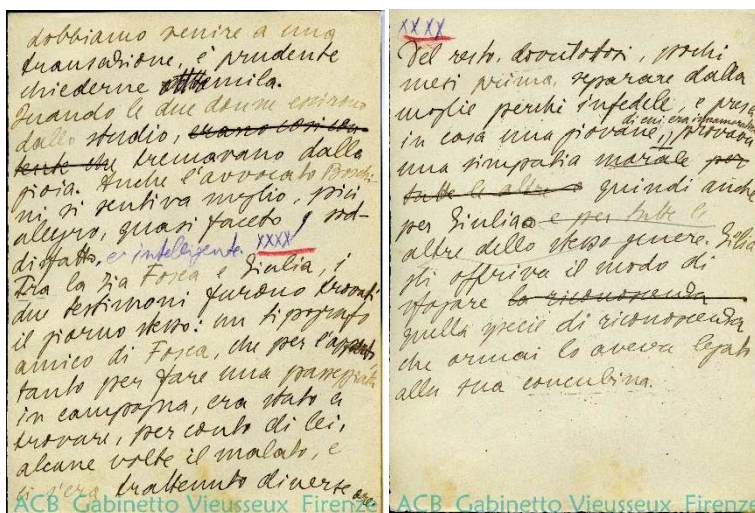 dobbiamo venire a una
transazione, è prudente
chiederne ottomila.
Quando le due donne escirono
dallo studio, erano così con-
tente che tremavano dalla
gioia. Anche l'avvocato Boschi-
ni si sentiva meglio, più
allegro, quasi faceto, sod-
disfatto, e intelligente. XXXX
Tra la zia Fosca e Giulia, i
due testimoni furono trovati
il giorno stesso: un tipografo
amico di Fosca, che per l'appunto
tanto per fare una passeggiata
in campagna, era stato a
trovare, per conto di lei,
alcune volte il malato, e
si c'era trattenuto diverse ore
ACB Gabinetto Vieusseux Firenze
XXXX
Del resto, dovutotosi, pochi
mesi prima, separare dalla
moglie perché infedele, e presa
in casa una giovane, di cui era innamorato, provava
una simpatia morale per
tutte le altre e quindi anche
per Giulia e per tutte le
altre dello stesso genere. Giulia
gli offriva il modo di
sfogare la riconoscenza
quella specie di riconoscenza
che ormai lo aveva legato
alla sua concubina.
ACB Gabinetto Vieusseux Firenze